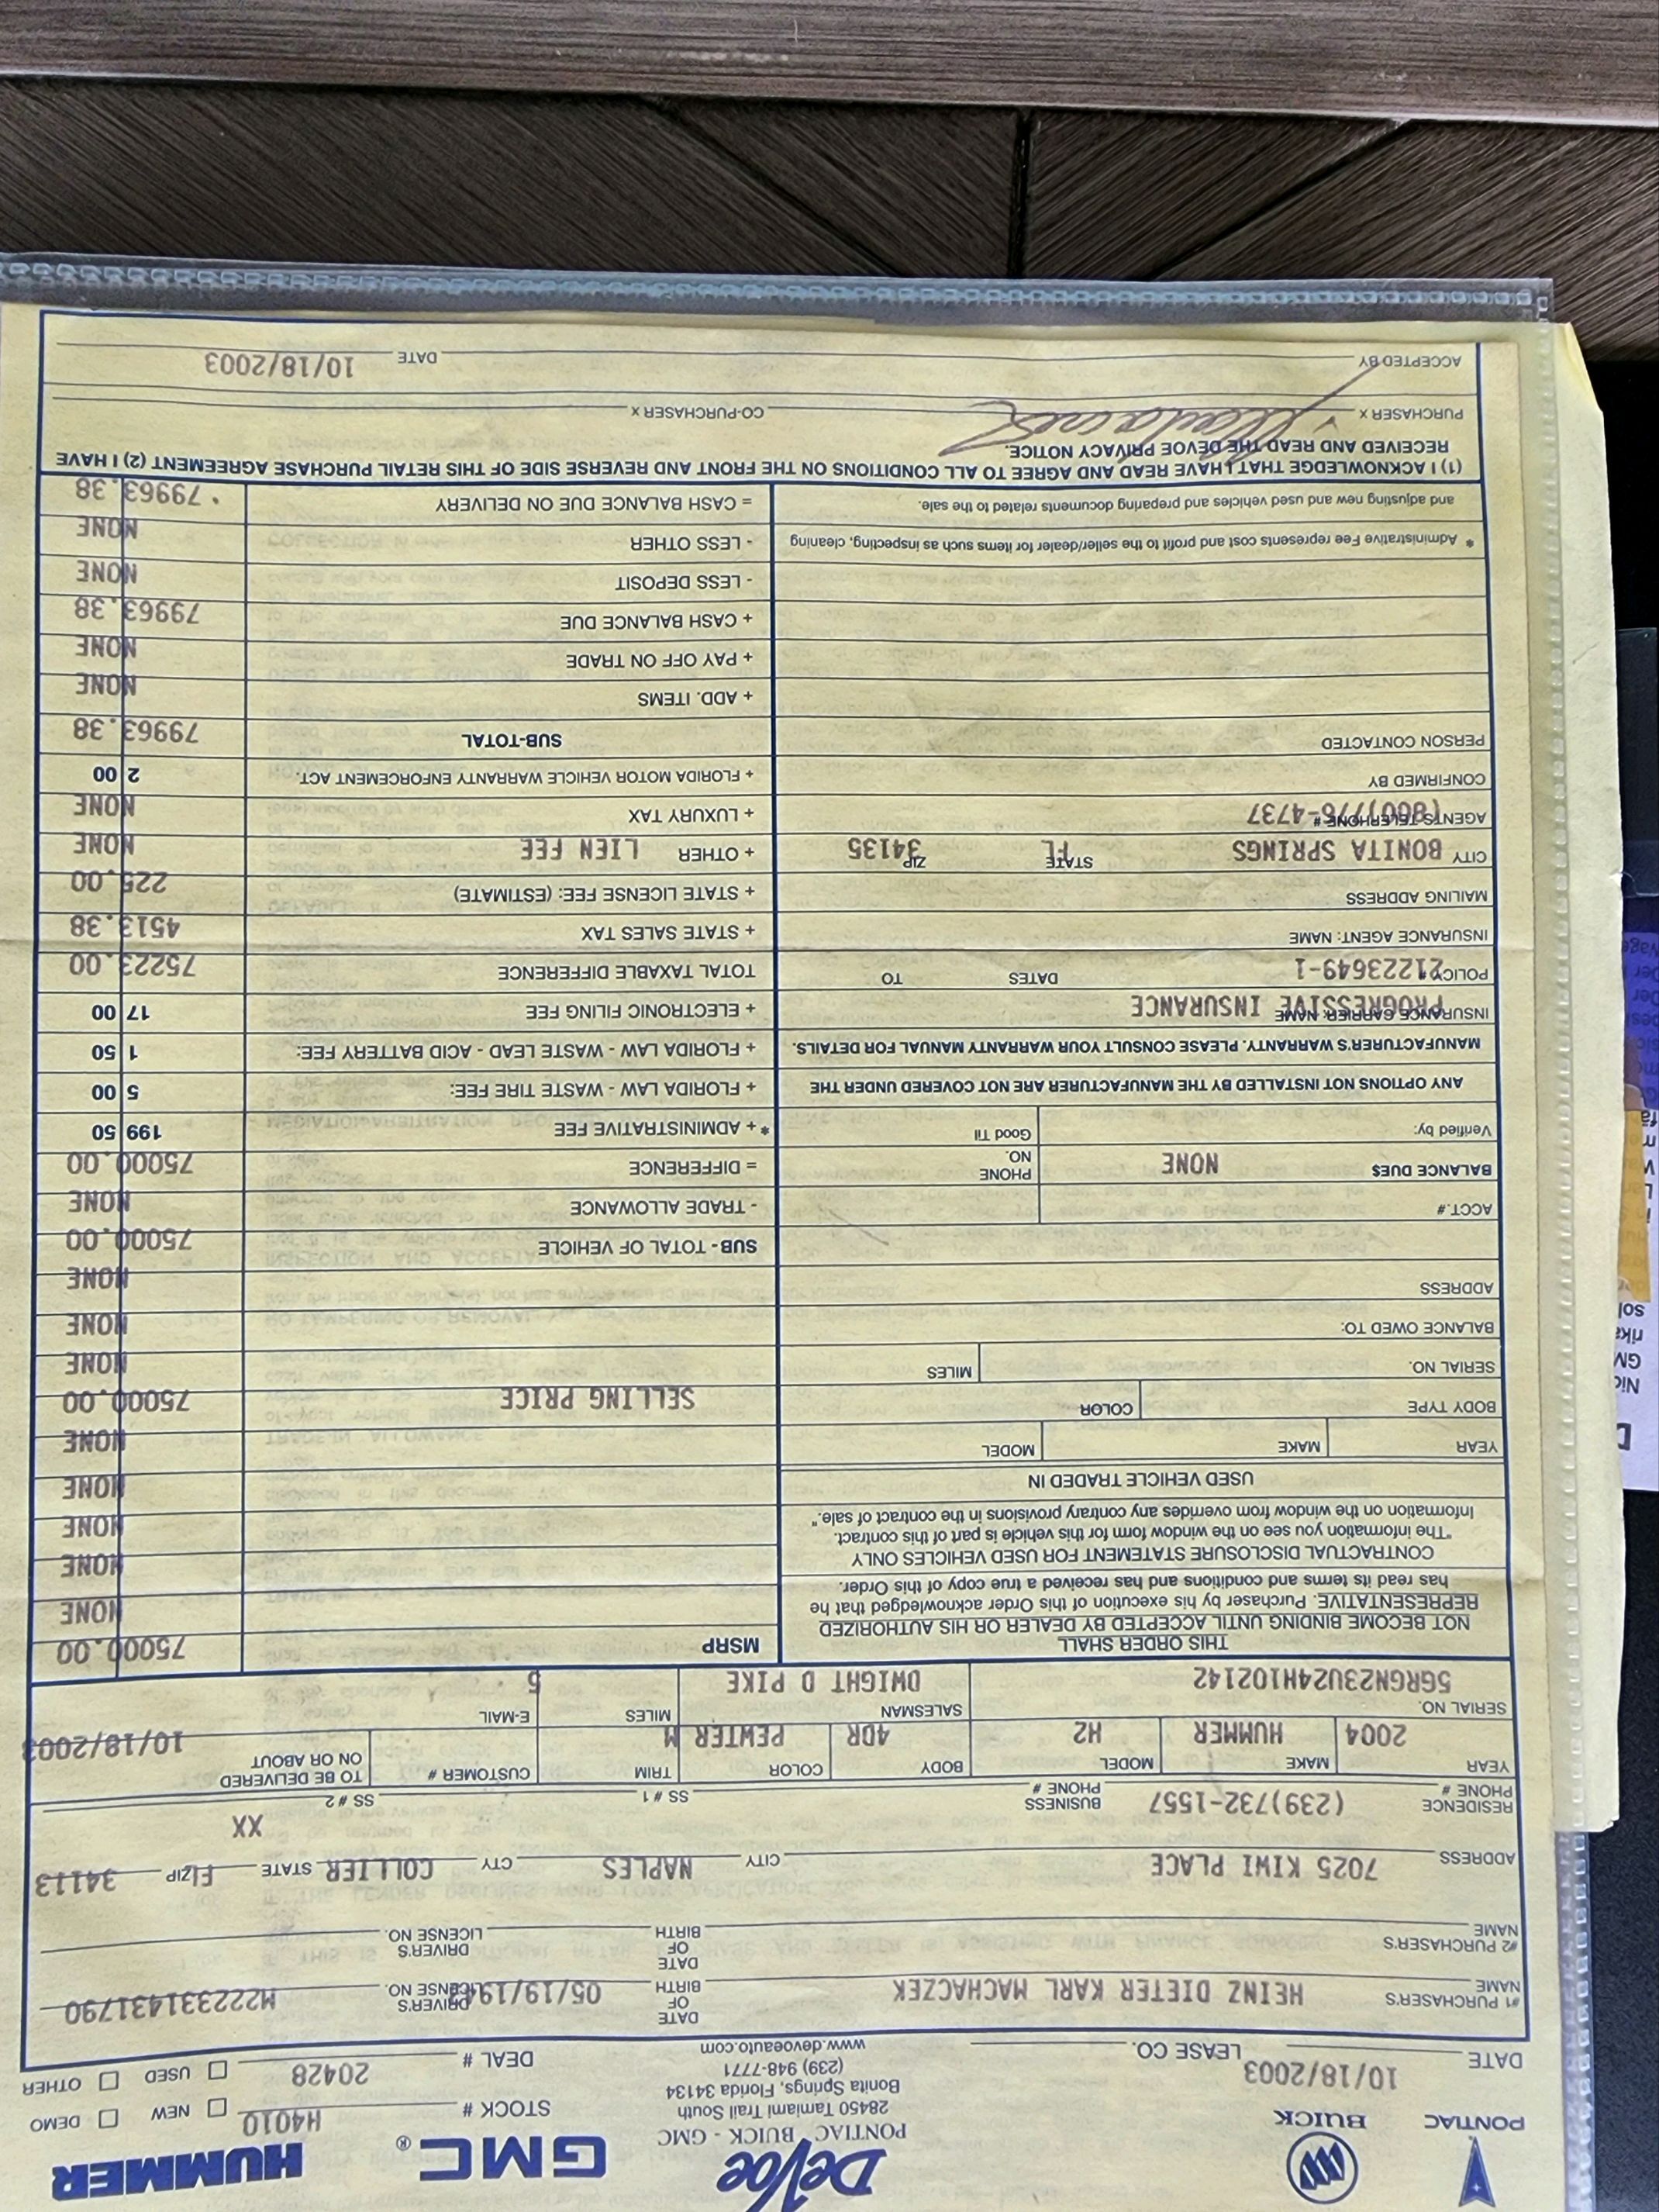 PONTIAC
BUICK
DeVoe
PONTIAC - BUICK - GMC
28450 Tamiami Trail South
Bonita Springs, Florida 34134
(239) 948-7771
www.devoeauto.com
GMC®
HUMMER
STOCK # H4010 NEW DEMO
DEAL # 20428 USED OTHER
DATE 10/18/2003 LEASE CO.
#1 PURCHASER'S NAME HEINZ DIETER KARL MACHACZEK DATE OF BIRTH 05/19/1943 DRIVER'S LICENSE NO. M222331431790
#2 PURCHASER'S NAME DATE OF BIRTH DRIVER'S LICENSE NO.
ADDRESS 7025 KIWI PLACE CITY NAPLES CTY COLLIER STATE Fl ZIP 34113
RESIDENCE PHONE # (239)732-1557 BUSINESS PHONE # SS #1 SS #2 XX
YEAR MAKE MODEL BODY COLOR TRIM CUSTOMER # TO BE DELIVERED ON OR ABOUT
2004 HUMMER H2 4DR PEWTER M 10/18/2003
SERIAL NO. SALESMAN MILES E-MAIL
5GRGN23U24H102142 DWIGHT D PIKE 5
THIS ORDER SHALL
NOT BECOME BINDING UNTIL ACCEPTED BY DEALER OR HIS AUTHORIZED
REPRESENTATIVE. Purchaser by his execution of this Order acknowledged that he
has read its terms and conditions and has received a true copy of this Order.
CONTRACTUAL DISCLOSURE STATEMENT FOR USED VEHICLES ONLY
"The information you see on the window form for this vehicle is part of this contract.
Information on the window form overrides any contrary provisions in the contract of sale."
USED VEHICLE TRADED IN
YEAR MAKE MODEL
BODY TYPE COLOR
SERIAL NO. MILES
BALANCE OWED TO:
ADDRESS
ACCT. #
BALANCE DUE$ NONE PHONE NO.
Verified by: Good Til
ANY OPTIONS NOT INSTALLED BY THE MANUFACTURER ARE NOT COVERED UNDER THE
MANUFACTURER'S WARRANTY. PLEASE CONSULT YOUR WARRANTY MANUAL FOR DETAILS.
INSURANCE CARRIER: NAME PROGRESSIVE INSURANCE
POLICY # 21223649-1 DATES TO
INSURANCE AGENT: NAME
MAILING ADDRESS
CITY BONITA SPRINGS STATE FL ZIP 34135
AGENTS TELEPHONE # (800)776-4737
CONFIRMED BY
PERSON CONTACTED
* Administrative Fee represents cost and profit to the seller/dealer for items such as inspecting, cleaning
and adjusting new and used vehicles and preparing documents related to the sale.
MSRP 75000.00
NONE
NONE
NONE
NONE
NONE
SELLING PRICE 75000.00
NONE
NONE
NONE
SUB - TOTAL OF VEHICLE 75000.00
- TRADE ALLOWANCE NONE
= DIFFERENCE 75000.00
* + ADMINISTRATIVE FEE 199 50
+ FLORIDA LAW - WASTE TIRE FEE: 5 00
+ FLORIDA LAW - WASTE LEAD - ACID BATTERY FEE: 1 50
+ ELECTRONIC FILING FEE 17 00
TOTAL TAXABLE DIFFERENCE 75223.00
+ STATE SALES TAX 4513.38
+ STATE LICENSE FEE: (ESTIMATE) 225.00
+ OTHER LIEN FEE NONE
+ LUXURY TAX NONE
+ FLORIDA MOTOR VEHICLE WARRANTY ENFORCEMENT ACT. 2 00
SUB-TOTAL 79963.38
+ ADD. ITEMS NONE
+ PAY OFF ON TRADE NONE
+ CASH BALANCE DUE 79963.38
- LESS DEPOSIT NONE
- LESS OTHER NONE
= CASH BALANCE DUE ON DELIVERY 79963.38
(1) I ACKNOWLEDGE THAT I HAVE READ AND AGREE TO ALL CONDITIONS ON THE FRONT AND REVERSE SIDE OF THIS RETAIL PURCHASE AGREEMENT (2) I HAVE
RECEIVED AND READ THE DEVOE PRIVACY NOTICE.
PURCHASER X CO-PURCHASER X
ACCEPTED BY DATE 10/18/2003